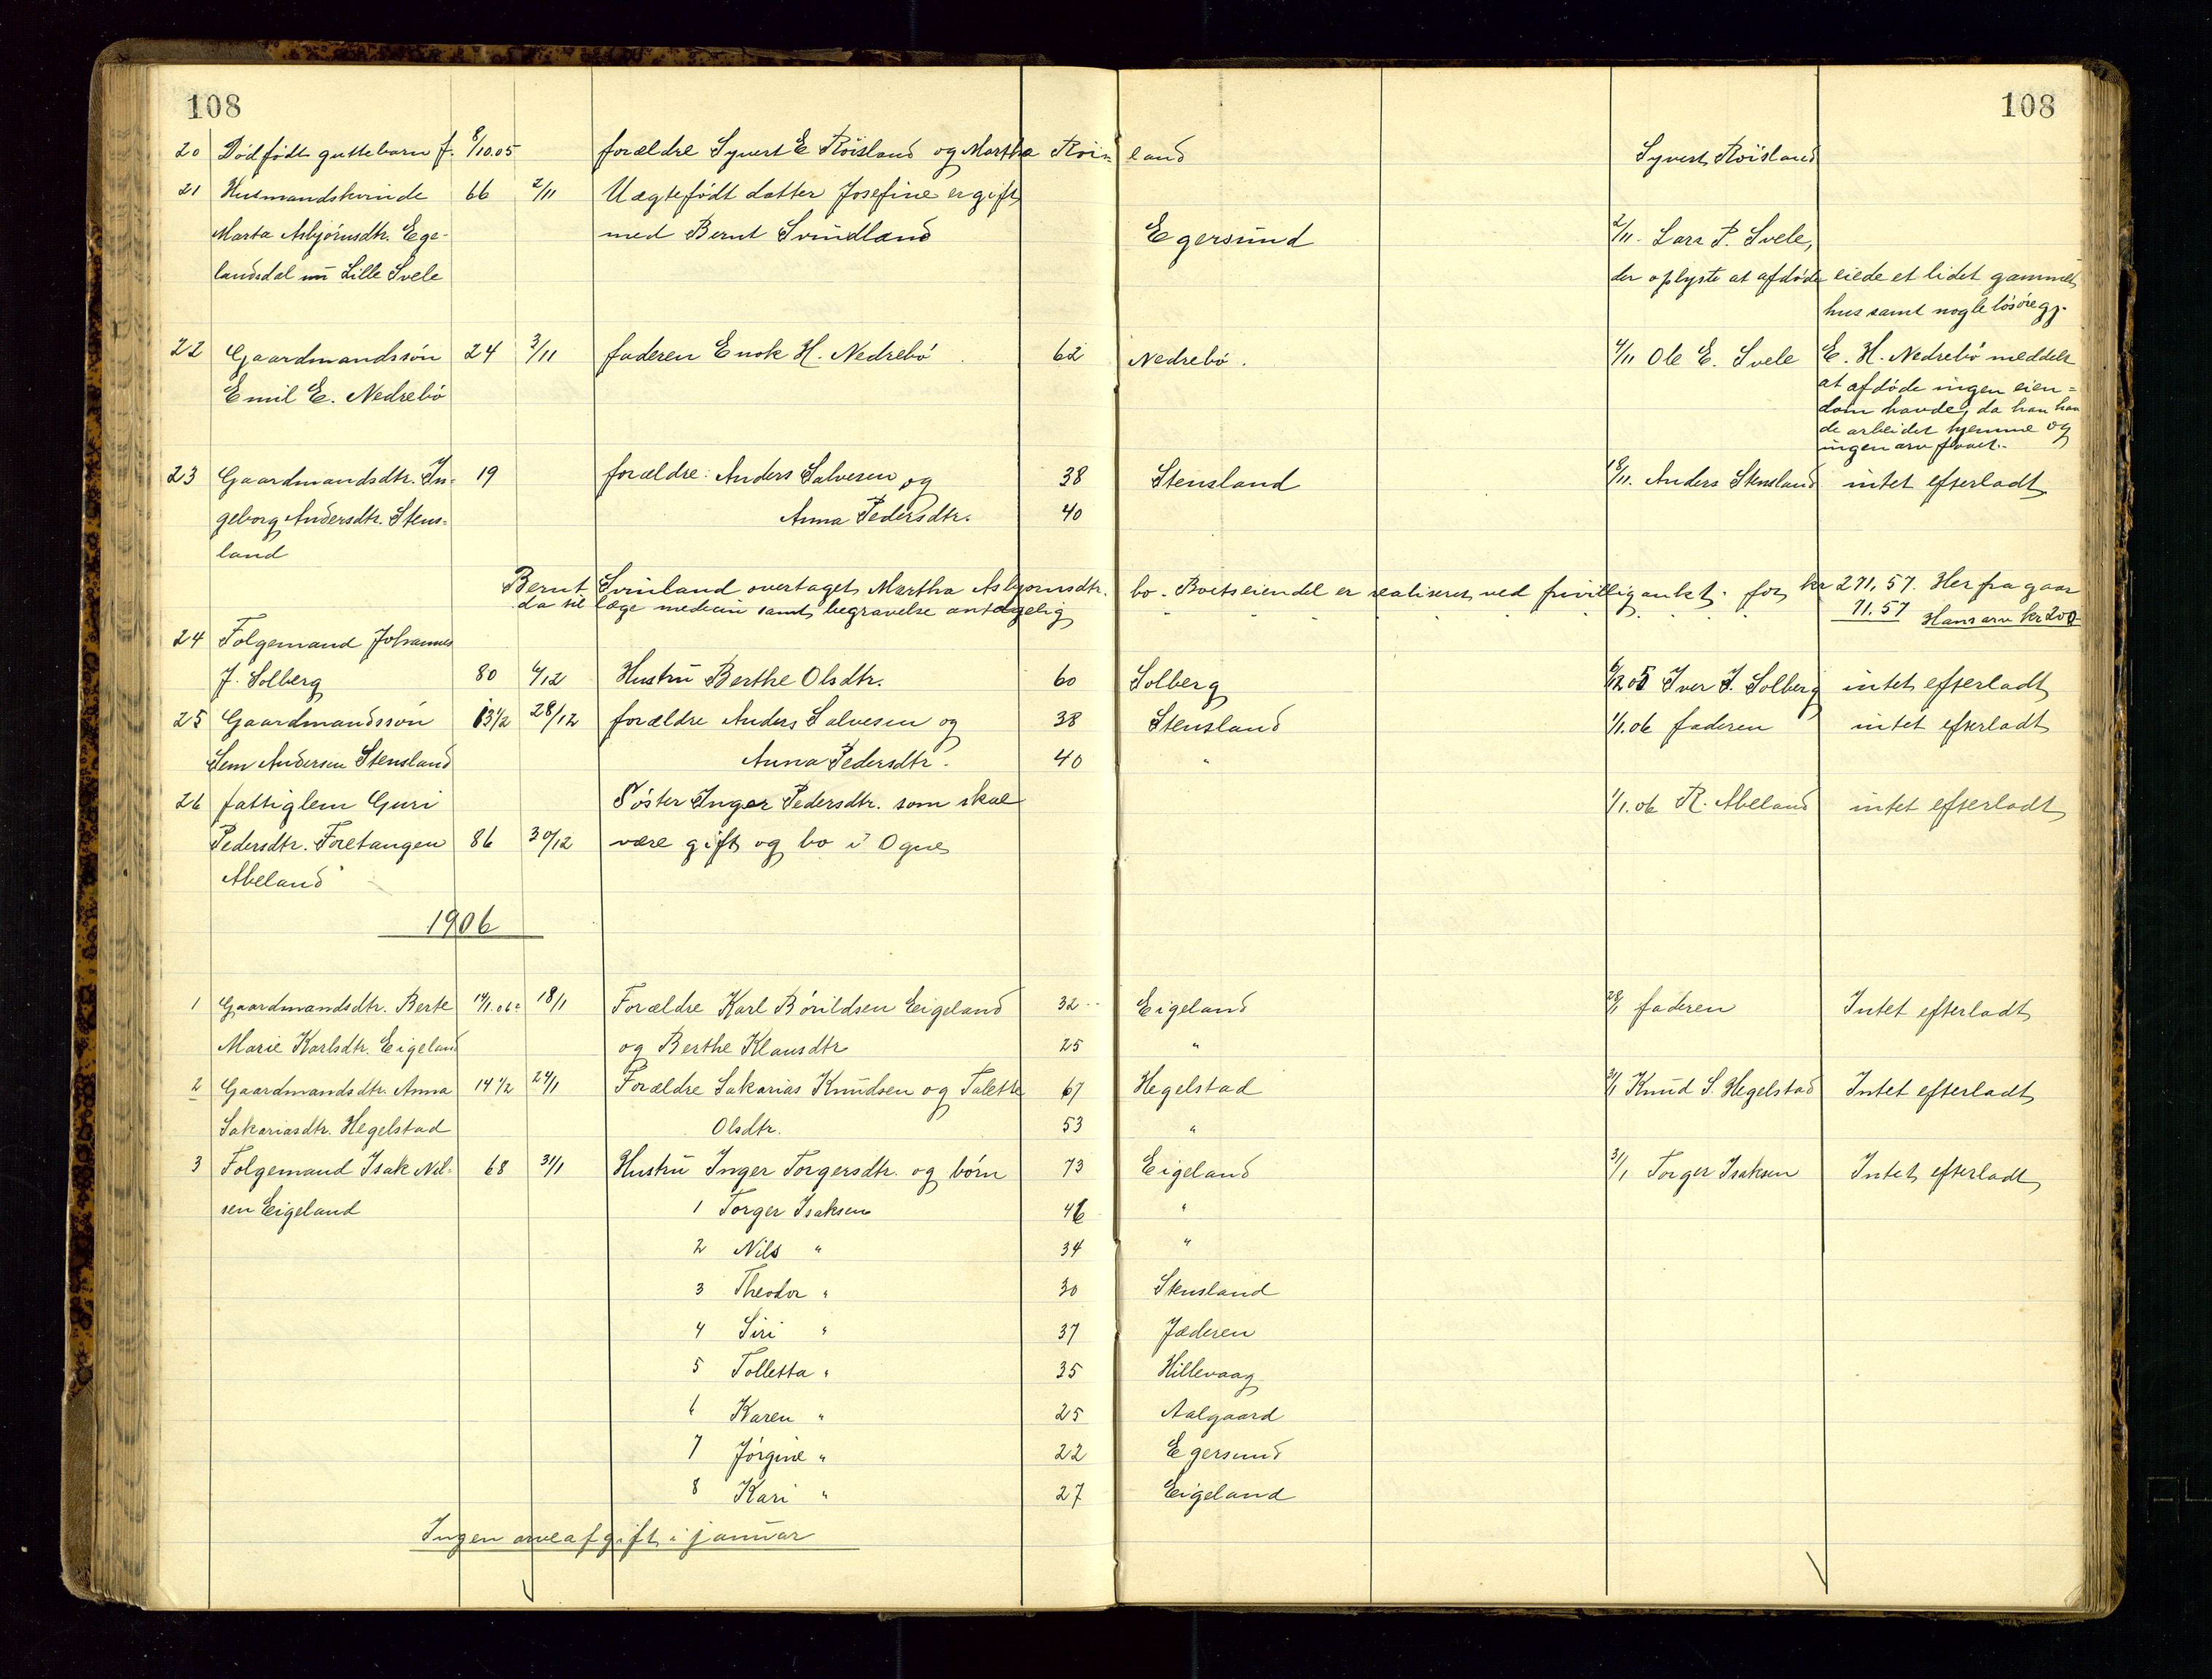 108 108
20 Dødfødt guttebarn f. 8/10.05 forældre Syvert E Røisland og Martha Røis= land Syvert Røisland
21 Husmandskvinde 66 2/11 Uægtefødt datter Josefine er gift
Marta Asbjørnsdtr. Ege- med Bernt Svindland Egersund 2/11. Lars P. Svele,
landsdal nu Lille Svele der oplyste at afdøde eiede et lidet gammelt
hus samt nogle løsøregj.
22 Gaardmandssøn 24 3/11 faderen Enok H. Nedrebø 62 Nedrebø. 4/11 Ole E. Svele E. H. Nedrebø meddelte
Emil E. Nedrebø at afdøde ingen eien=
dom havde, da han hav
de arbeidet hjemme og
ingen arv faaet.
23 Gaardmandsdtr. In= 19 forældre: Anders Salvesen og 38 Stensland 18/11. Anders Stensland intet efterladt
geborg Andersdtr. Stens= Anna Pedersdtr. 40
land
Bernt Svinland overtaget Martha Asbjørnsdtr. bo. Boets eiendel er realiseret ved frivillig aukt. for kr 271,57. Herfra gaar
da til læge medicin samt begravelse antagelig 71.57 Hans arv kr 200
24 Følgemand Johannes
J. Solberg 80 6/12 Hustru Berthe Olsdtr. 60 Solberg 6/12 05 Iver J. Solberg intet efterladt
25 Gaardmandssøn 13 1/2 28/12 forældre Anders Salvesen og 38 Stensland 1/1.06 faderen intet efterladt
Sem Andersen Stensland Anna Pedersdtr. 40 "
26 fattiglem Guri Søster Inger Pedersdtr. som skal 1/1.06 R. Abeland intet efterladt
Pedersdtr. Foretangen 86 30/12 være gift og bo i Ogne
Abeland
1906
1 Gaardmandsdtr. Berte 14/1.06 18/1 Forældre Karl Børildsen Eigeland 32 Eigeland 28/1 faderen Intet efterladt
Marie Karlsdtr. Eigeland og Berthe Klausdtr 25 "
2 Gaardmandsdtr. Anna 14 1/2 24/1 Forældre Sakarias Knudsen og Talette 67 Hegelstad 31/1 Knud S. Hegelstad Intet efterladt
Sakariasdtr. Hegelstad Olsdtr. 53 "
3 Følgemand Isak Nil= 68 31/1 Hustru Inger Torgersdtr. og børn 73 Eigeland 31/1 Torger Isaksen Intet efterladt
sen Eigeland 1 Torger Isaksen 46 "
2 Nils " 34 "
3 Theodor " 30 Stensland
4 Siri " 37 Jæderen
5 Tolletta " 35 Hillevaag
6 Karen " 25 Aalgaard
7 Jørgine " 22 Egersund
8 Kari " 27 Eigeland
Ingen arveafgift i januar